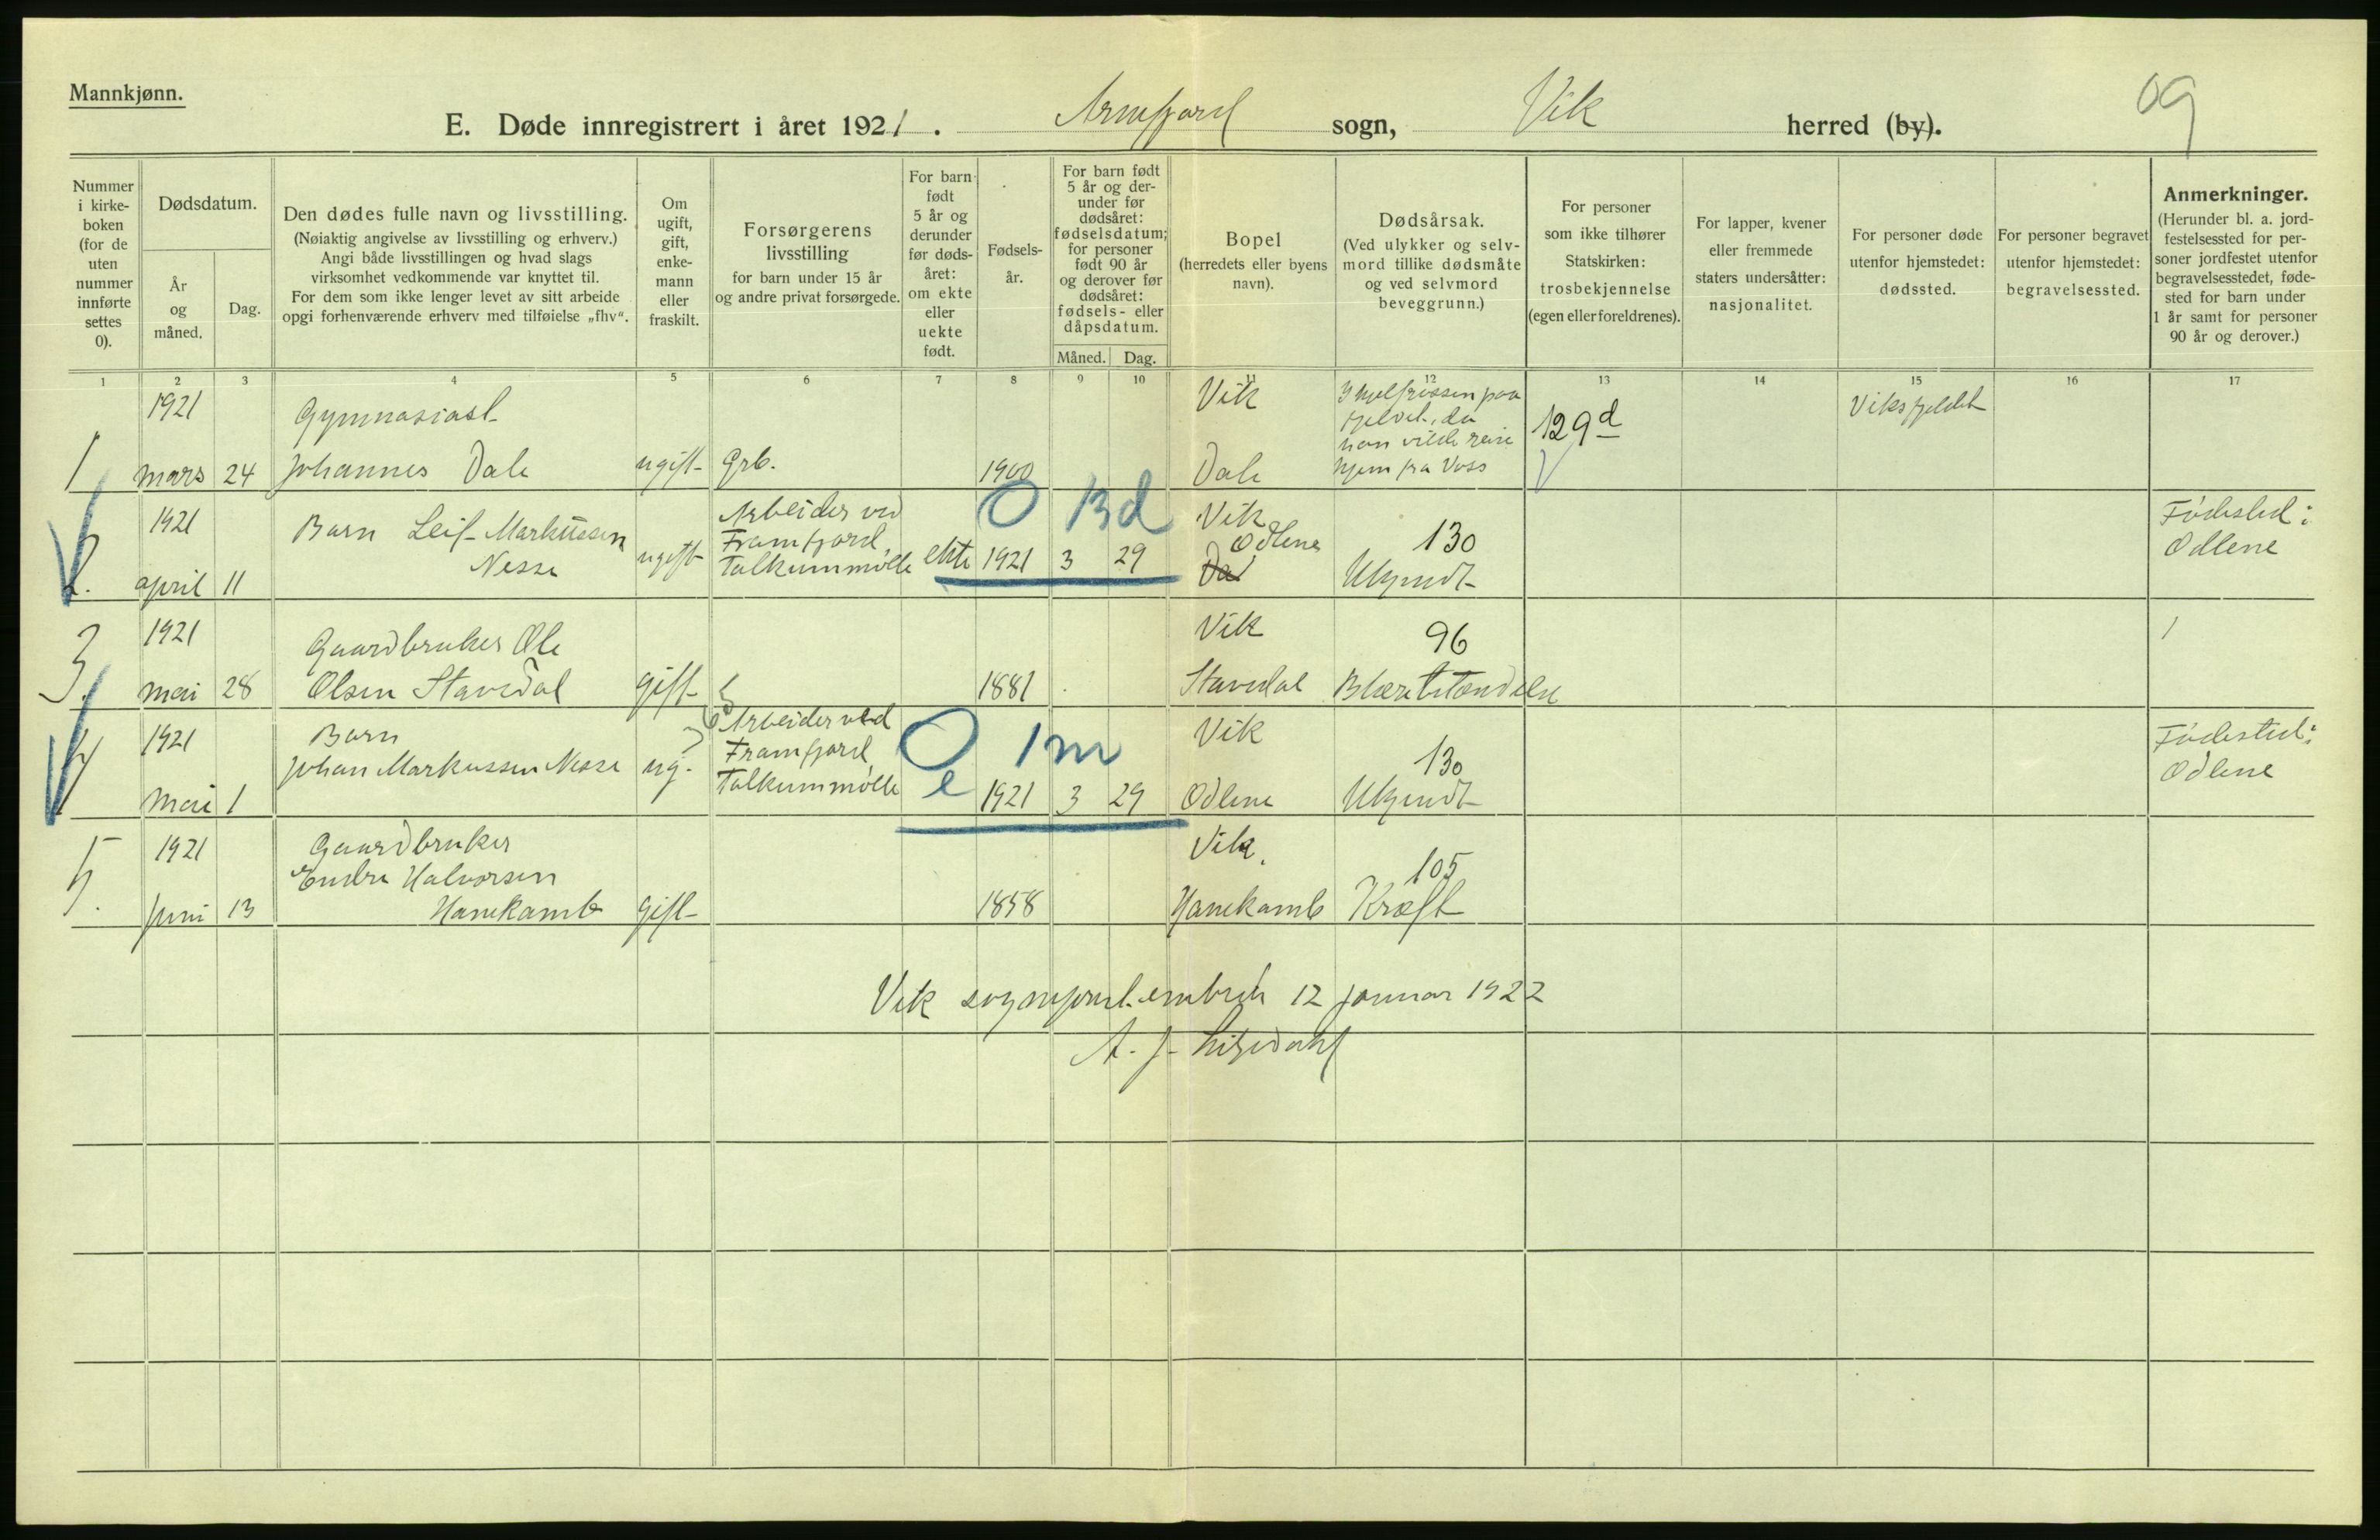 Mannkjønn.
E. Døde innregistrert i året 1921. Arnefjord sogn, Vik herred (by).
09
Nummer i kirkeboken (for de uten nummer innførte settes 0).
Dødsdatum.
År og måned.
Dag.
Den dødes fulle navn og livsstilling.
(Nøiaktig angivelse av livsstilling og erhverv.)
Angi både livsstillingen og hvad slags
virksomhet vedkommende var knyttet til.
For dem som ikke lenger levet av sitt arbeide
opgi forhenværende erhverv med tilføielse „fhv“.
Om ugift, gift, enkemann eller fraskilt.
Forsørgerens livsstilling
for barn under 15 år
og andre privat forsørgede.
For barn født 5 år og derunder før dødsåret: om ekte eller uekte født.
Fødselsår.
For barn født 5 år og derunder før dødsåret: fødselsdatum; for personer født 90 år og derover før dødsåret: fødsels- eller dåpsdatum.
Måned. Dag.
Bopel
(herredets eller byens navn).
Dødsårsak.
(Ved ulykker og selvmord tillike dødsmåte og ved selvmord beveggrunn.)
For personer som ikke tilhører Statskirken: trosbekjennelse (egen eller foreldrenes).
For lapper, kvener eller fremmede staters undersåtter: nasjonalitet.
For personer døde utenfor hjemstedet: dødssted.
For personer begravet utenfor hjemstedet: begravelsessted.
Anmerkninger.
(Herunder bl. a. jordfestelsessted for personer jordfestet utenfor begravelsesstedet, fødested for barn under 1 år samt for personer 90 år og derover.)
1 2 3 4 5 6 7 8 9 10 11 12 13 14 15 16 17
1921 Gymnasiast Vik Ihjelfrossen paa Viksfjeldet
fjeldet, da 129d
han vilde reise
1 mars 24 Johannes Dale ugift Grb. 1900 Dale hjem fra Voss
0 13d
1921 Barn Leif Markussen Arbeider ved Vik 130 Fødested:
Nesse ugift Framfjord Odlene Odlene
2. april 11 Talkummølle ekte 1921 3 29 Dal Ukjendt
1921 Gaardbruker Ole Vik 96
3. mai 28 Olsen Stavedal gift 1881 Stavedal Blærebetændelse
1921 Barn Arbeider ved 0 1m Vik Fødested:
Johan Markussen Nesse ug. Framfjord 130 Odlene
4 mai 1 Talkummølle e 1921 3 29 Odlene Ukjendt
1921 Gaardbruker Vik.
Endre Halvorsen 105
5. juni 13 Hanekamb gift 1858 Hanekamb Kræft
Vik sogneprestembede 12 januar 1922
A. J.